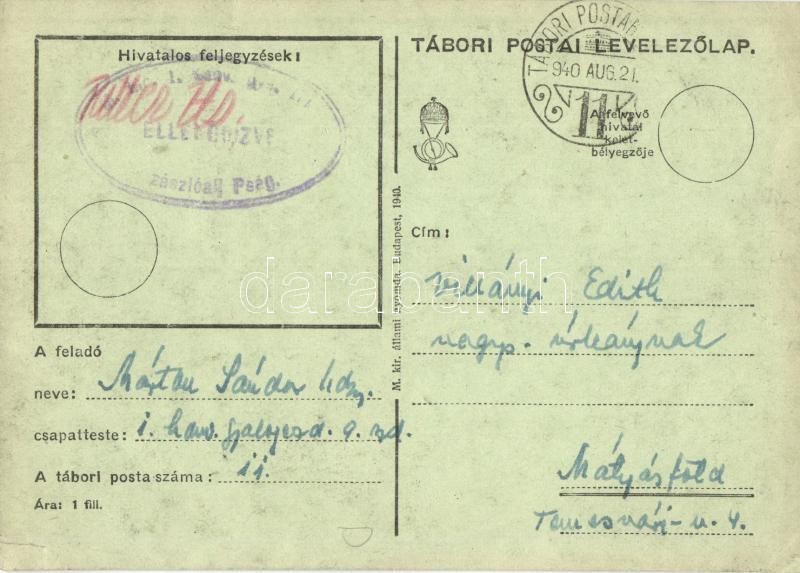 Hivatalos feljegyzések:
ELLENŐRIZVE
zászlóalj Pság.
A feladó
neve: Márton Sándor hdzj.
csapatteste: 1. honv. gyalogezd. 9. szd.
A tábori posta száma: 11.
Ára: 1 fill.
M. kir. állami nyomda. Budapest, 1940.
TÁBORI POSTAI LEVELEZŐLAP.
TÁBORI POSTAH
940 AUG. 21.
11
A felvevő
hivatal
kelet-
bélyegzője
Cím:
Villányi Edith
nagys. úrleánynak
Mátyásföld
Temesvári-u. 4.
darabanth